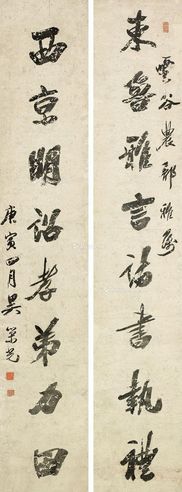 雲谷農部雅屬
東魯雅言詩書執禮
西京明詔孝弟力田
庚寅四月吳榮光